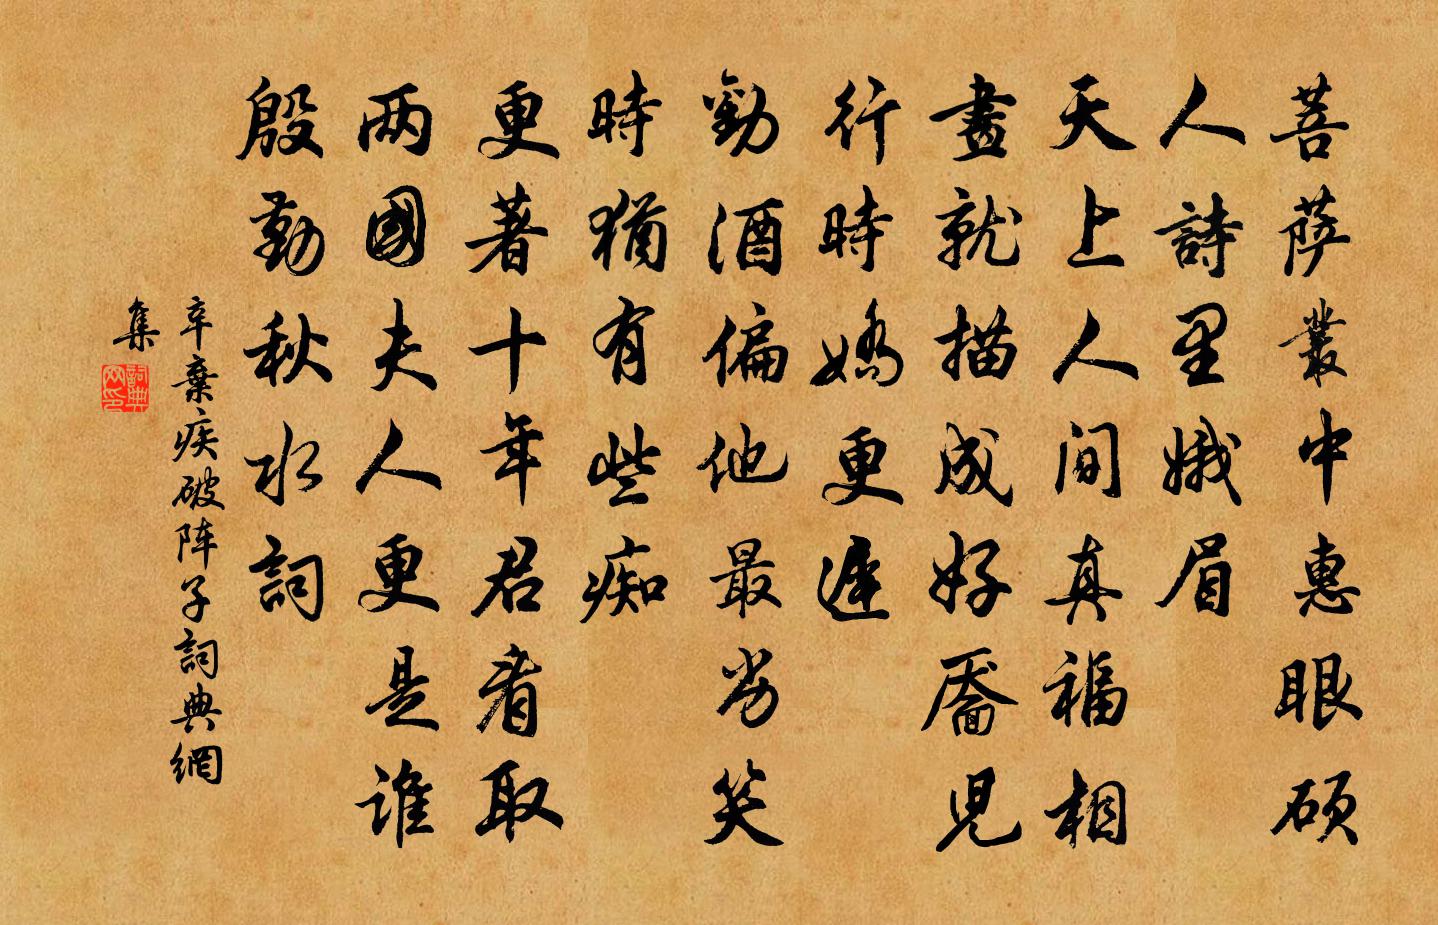 菩萨叢中惠眼硕
人詩里娥眉
天上人间真福相
畫就描成好靥兒
行時嬌更遲
勸酒偏他最劣笑
時猶有些痴
更著十年君看取
两國夫人更是谁
殷勤秋水詞
辛棄疾破阵子詞典網
集
詞典
网印